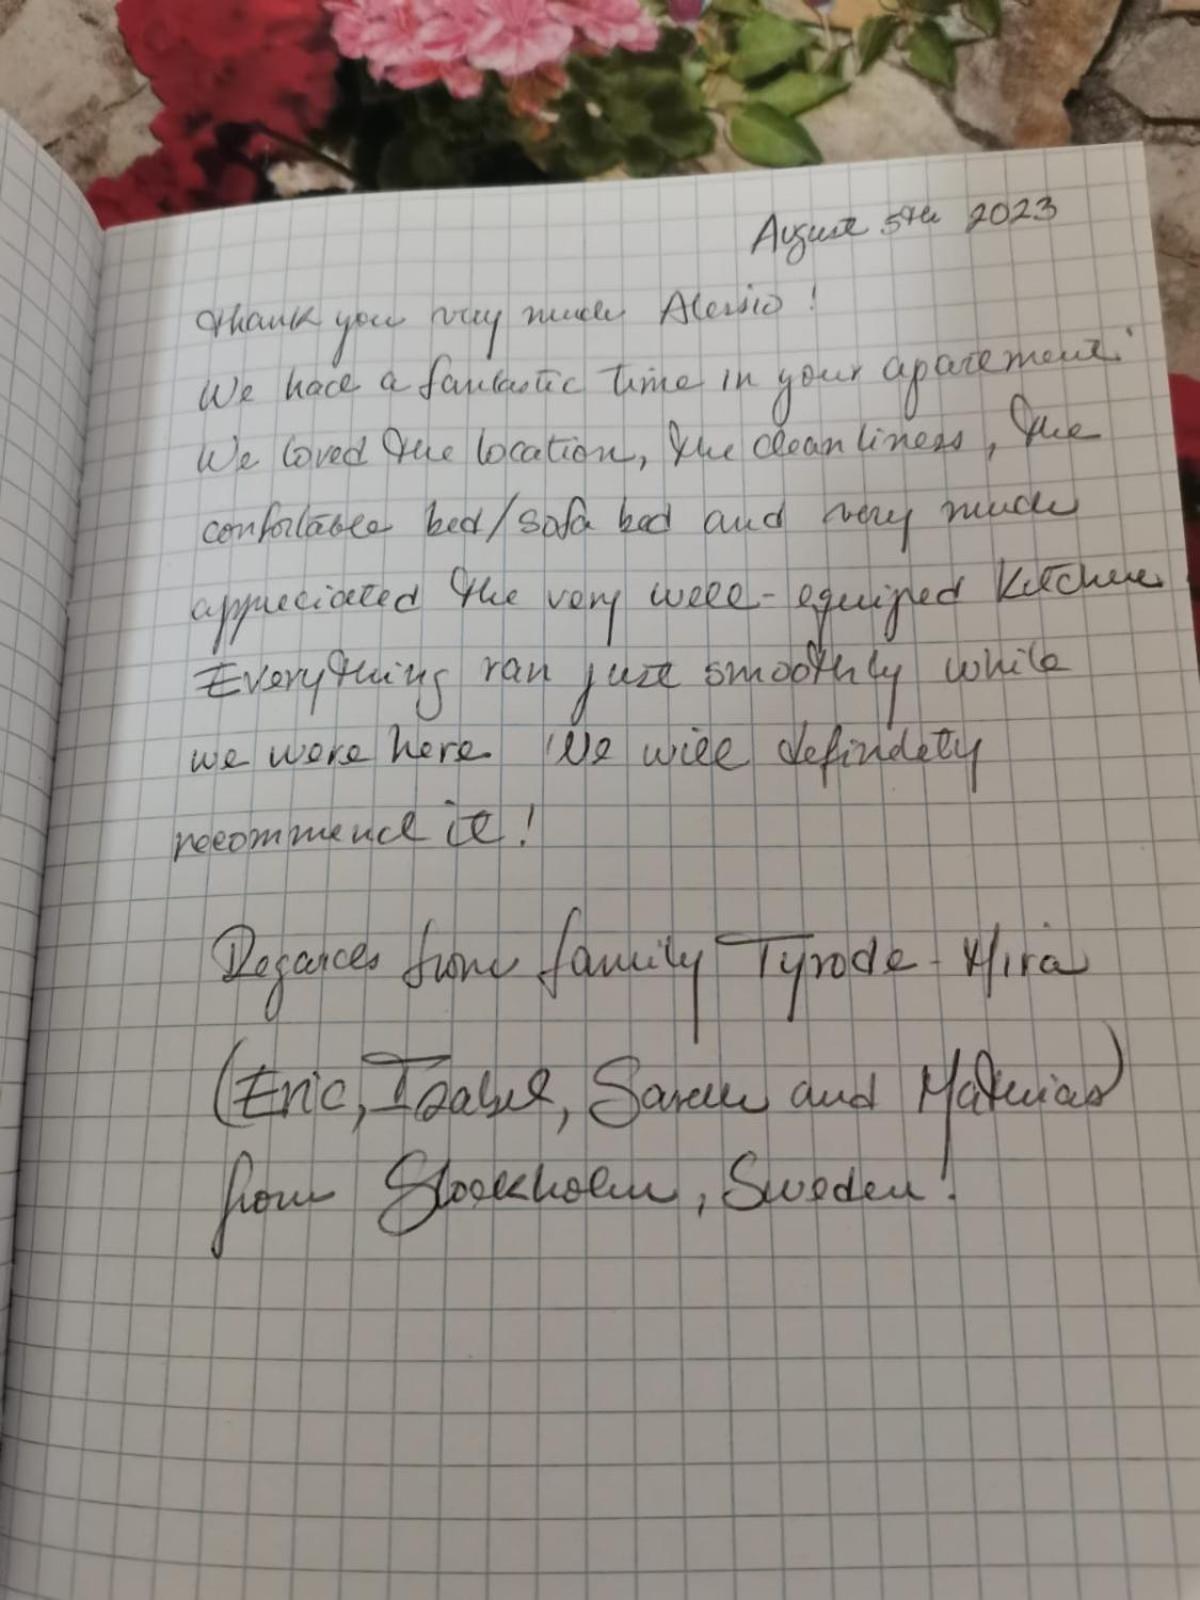 August 5th 2023
Thank you very much Alessio!
We had a fantastic time in your apartment.
We loved the location, the cleanliness, the
confortable bed/sofa bed and very much
appreciated the very well-equiped kitchen
Everything ran just smoothly while
we were here. We will defindetly
recommend it!
Regards from family Tyrode-Mira
(Eric, Izabel, Sarah and Mathias)
from Stockholm, Sweden!